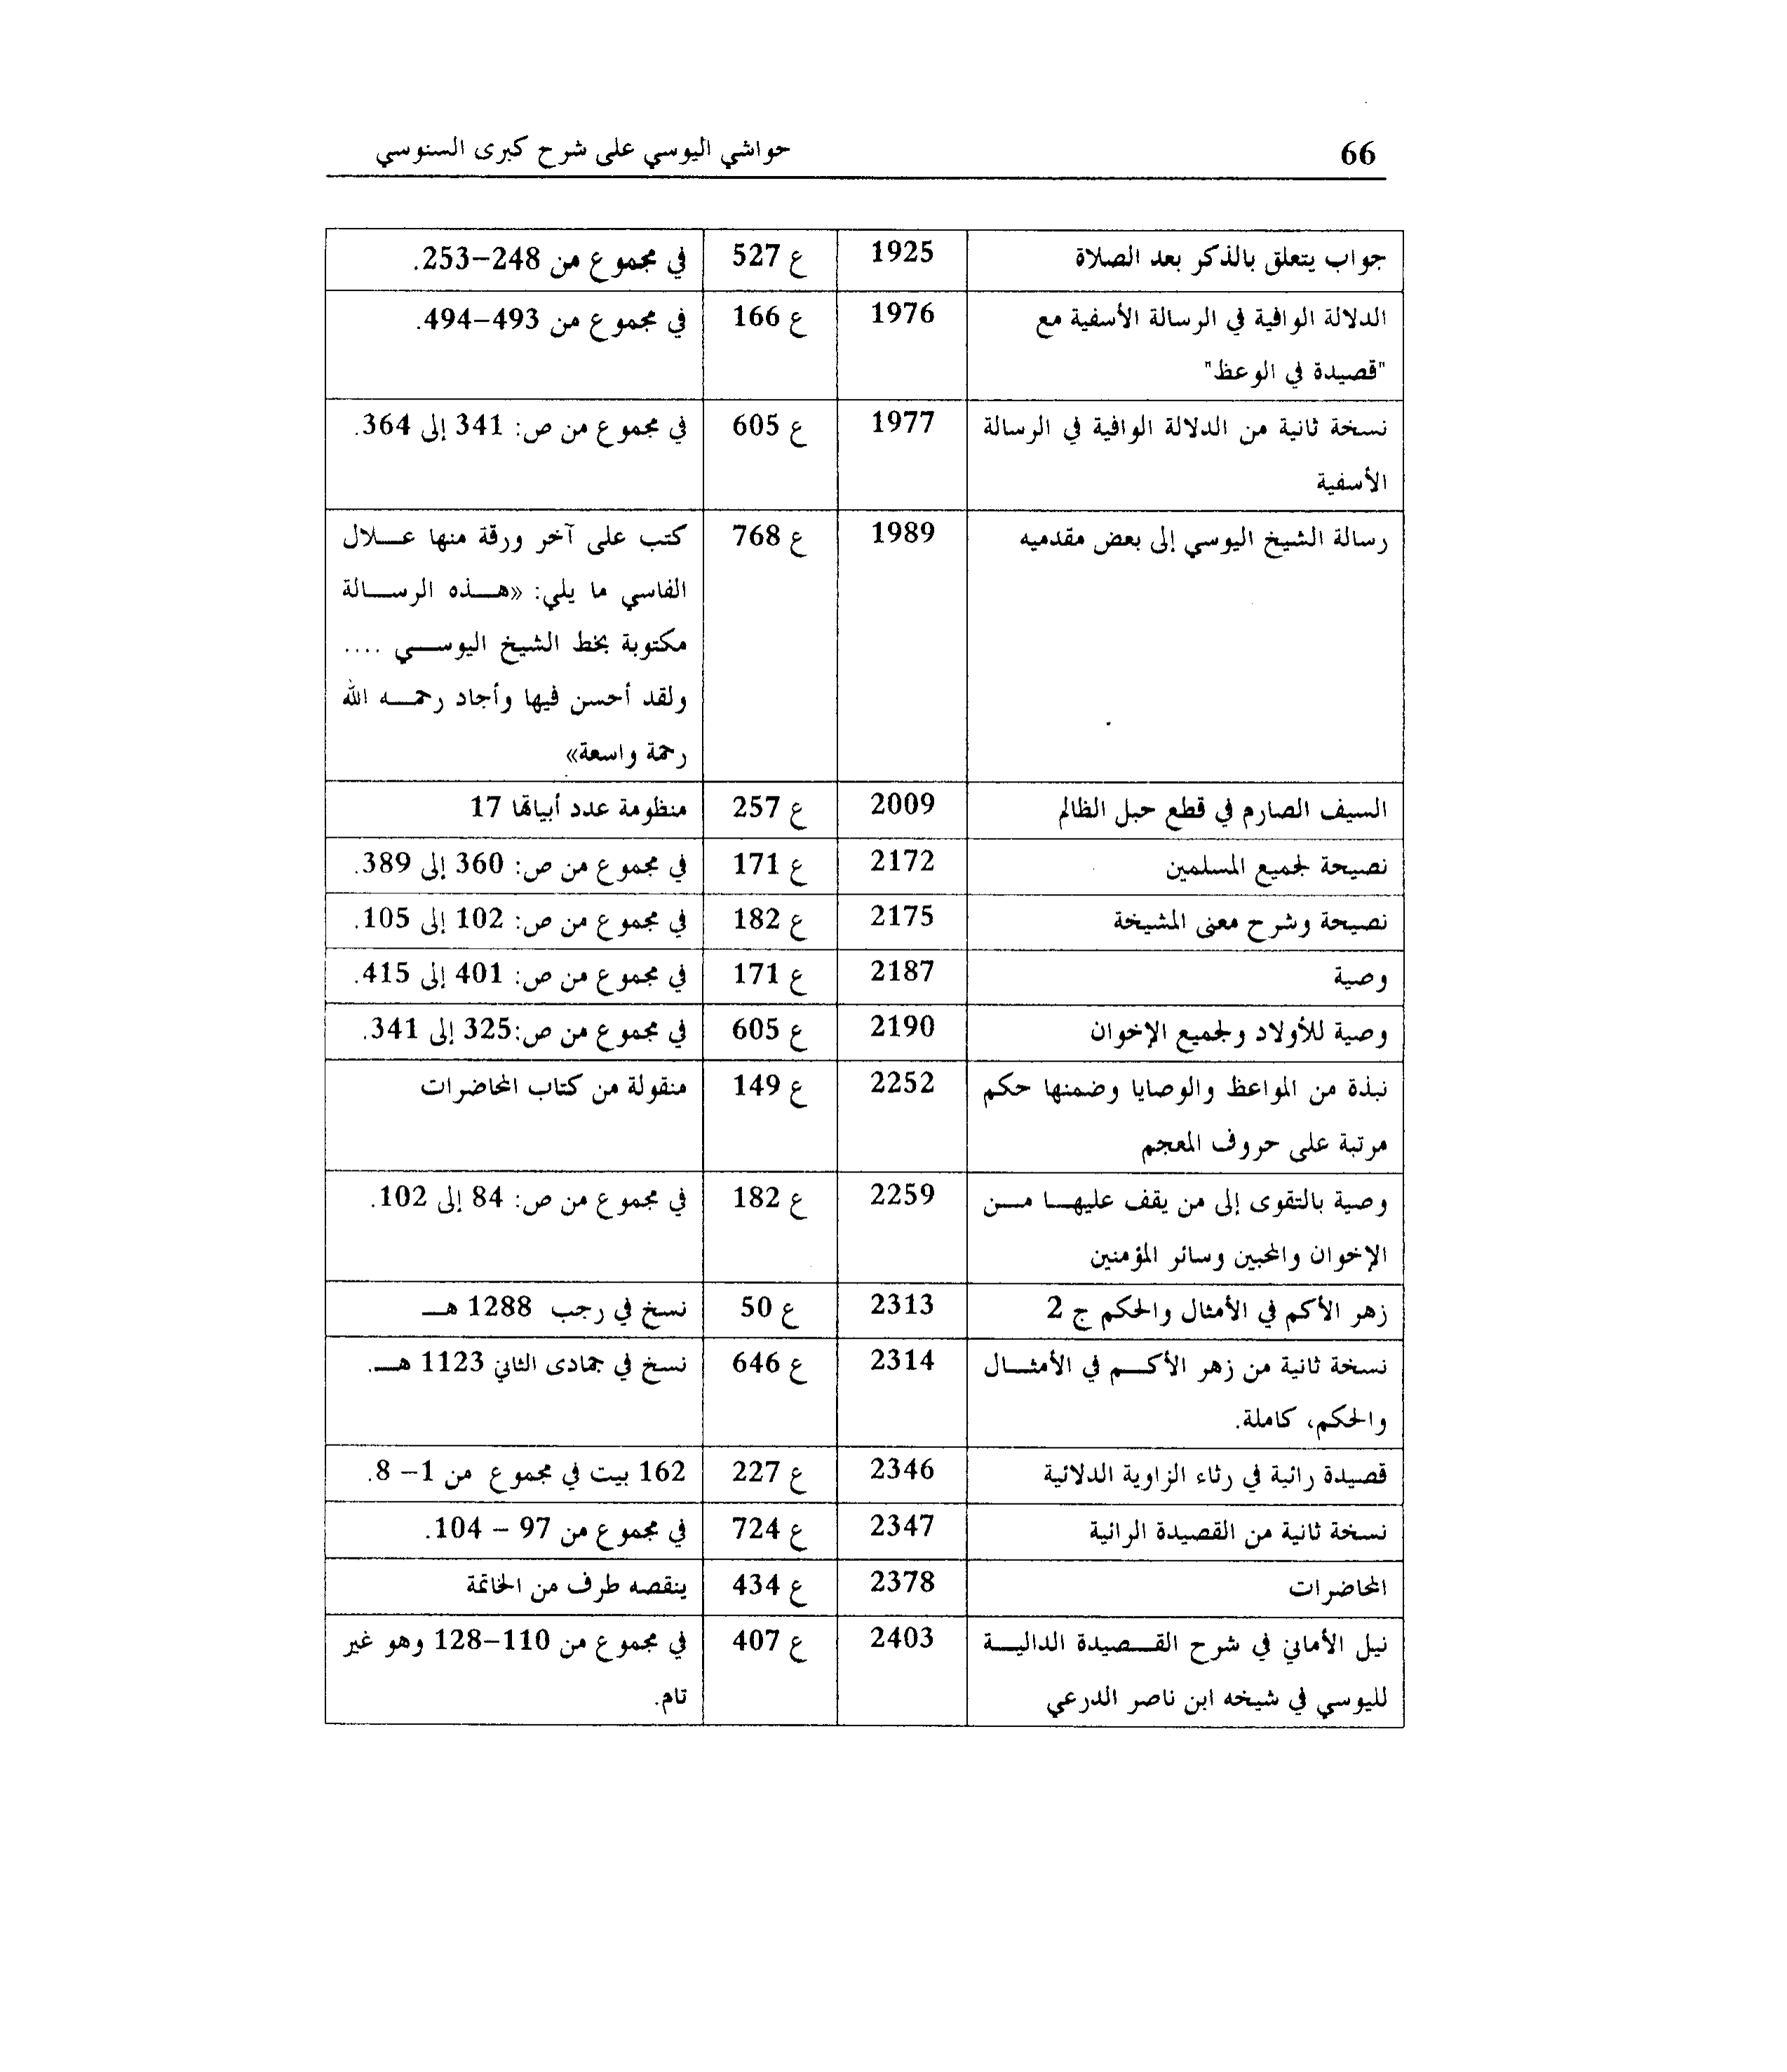 66 حواشي اليوسي على شرح كبرى السنوسي
جواب يتعلق بالذكر بعد الصلاة 1925 ع 527 في مجموع من 248-253.
الدلالة الوافية في الرسالة الأسفية مع 1976 ع 166 في مجموع من 493-494.
"قصيدة في الوعظ"
نسخة ثانية من الدلالة الوافية في الرسالة 1977 ع 605 في مجموع من ص: 341 إلى 364.
الأسفية
رسالة الشيخ اليوسي إلى بعض مقدميه 1989 ع 768 كتب على آخر ورقة منها عـلال
الفاسي ما يلي: «هـذه الرسـالة
مكتوبة بخط الشيخ اليوسـي ....
ولقد أحسن فيها وأجاد رحمـه الله
رحمة واسعة»
السيف الصارم في قطع حبل الظالم 2009 ع 257 منظومة عدد أبياتها 17
نصيحة لجميع المسلمين 2172 ع 171 في مجموع من ص: 360 إلى 389.
نصيحة وشرح معنى المشيخة 2175 ع 182 في مجموع من ص: 102 إلى 105.
وصية 2187 ع 171 في مجموع من ص: 401 إلى 415.
وصية للأولاد ولجميع الإخوان 2190 ع 605 في مجموع من ص:325 إلى 341.
نبذة من المواعظ والوصايا وضمنها حكم 2252 ع 149 منقولة من كتاب المحاضرات
مرتبة على حروف المعجم
وصية بالتقوى إلى من يقف عليهـا مـن 2259 ع 182 في مجموع من ص: 84 إلى 102.
الإخوان والمحبين وسائر المؤمنين
زهر الأكم في الأمثال والحكم ج 2 2313 ع 50 نسخ في رجب 1288 هـ
نسخة ثانية من زهر الأكـم في الأمثـال 2314 ع 646 نسخ في جمادى الثاني 1123 هـ.
والحكم، كاملة.
قصيدة رائية في رثاء الزاوية الدلائية 2346 ع 227 162 بيت في مجموع من 1- 8.
نسخة ثانية من القصيدة الرائية 2347 ع 724 في مجموع من 97 - 104.
المحاضرات 2378 ع 434 ينقصه طرف من الخاتمة
نيل الأماني في شرح القـصيدة الداليـة 2403 ع 407 في مجموع من 110-128 وهو غير
لليوسي في شيخه ابن ناصر الدرعي تام.